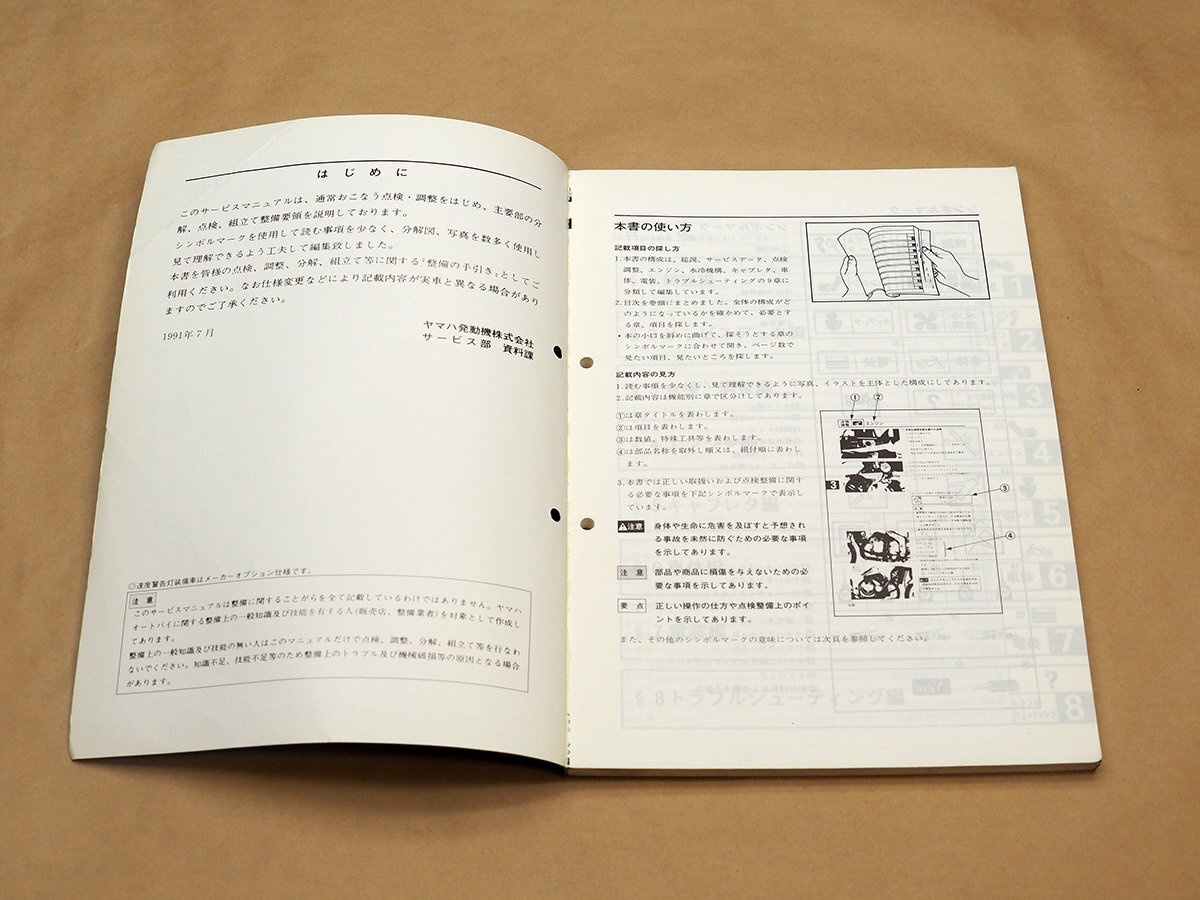 はじめに
このサービスマニュアルは、通常おこなう点検・調整をはじめ、主要部の分
解、点検、組立て整備要領を説明しております。
シンボルマークを使用して読む事項を少なく、分解図、写真を数多く使用し
見て理解できるよう工夫して編集致しました。
本書を皆様の点検、調整、分解、組立て等に関する〝整備の手引き〟としてご
利用ください。なお仕様変更などにより記載内容が実車と異なる場合があり
ますのでご了承ください。
1991年7月
ヤマハ発動機株式会社
サービス部 資料課
◎速度警告灯装備車はメーカーオプション仕様です。
注 意
このサービスマニュアルは整備に関することがらを全て記載しているわけではありません。ヤマハ
オートバイに関する整備上の一般知識及び技能を有する人(販売店、整備業者)を対象として作成し
てあります。
整備上の一般知識及び技能の無い人はこのマニュアルだけで点検、調整、分解、組立て等を行なわ
ないでください。知識不足、技能不足等のため整備上のトラブル及び機械破損等の原因となる場合
があります。
本書の使い方
記載項目の探し方
1.本書の構成は、総説、サービスデータ、点検
調整、エンジン、水冷機構、キャブレタ、車
体、電装、トラブルシューティングの9章に
分類して編集しています。
2.目次を巻頭にまとめました。全体の構成がど
のようになっているかを確かめて、必要とす
る章、項目を探します。
・本の小口を斜めに曲げて、探そうとする章の
シンボルマークに合わせて開き、ページ数で
見たい項目、見たいところを探します。
記載内容の見方
1.読む事項を少なくし、見て理解できるように写真、イラストを主体とした構成にしてあります。
2.記載内容は機能別に章で区分けしてあります。
①は章タイトルを表わします。
②は項目を表わします。
③は数値、特殊工具等を表わします。
④は部品名称を取外し順又は、組付順に表わし
ます。
3.本書では正しい取扱いおよび点検整備に関す
る必要な事項を下記シンボルマークで表示し
ています。
⚠注意 身体や生命に危害を及ぼすと予想され
る事故を未然に防ぐための必要な事項
を示してあります。
注 意 部品や商品に損傷を与えないための必
要な事項を示してあります。
要 点 正しい操作の仕方や点検整備上のポイ
ントを示してあります。
また、その他のシンボルマークの意味については次頁を参照してください。
① ②
エンジン
3
③
④